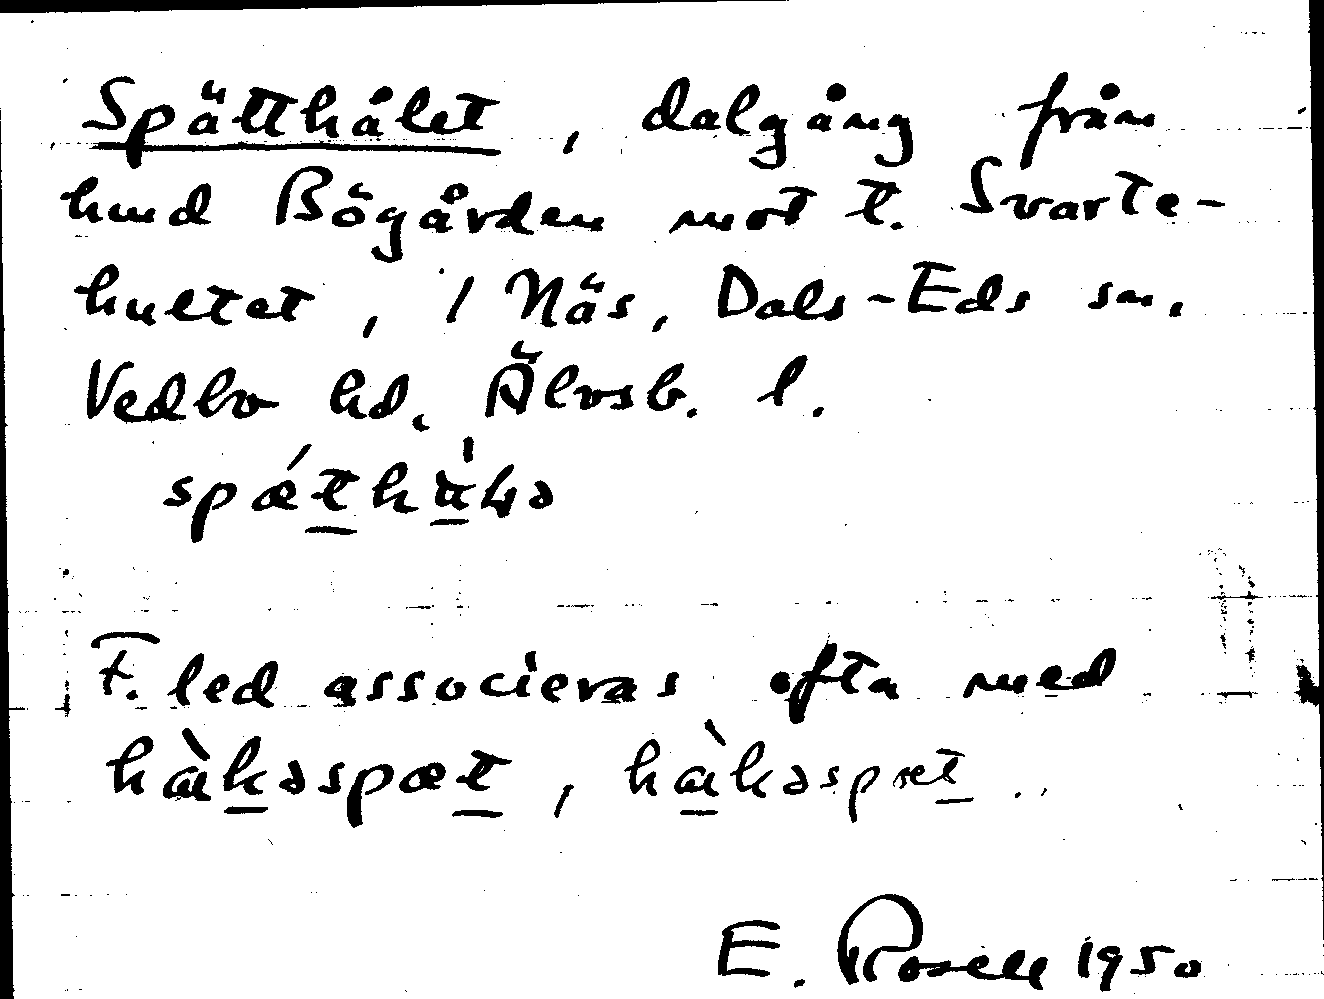 Spätthålet, dalgång från
hmd Bögården mot t. Svarte-
hultet, / Näs, Dals-Eds sn.
Vedbo hd. Älvsb. l.
F. led associeras ofta med
hàkəspæt, hàkəspæt.
E. Rosell 1950